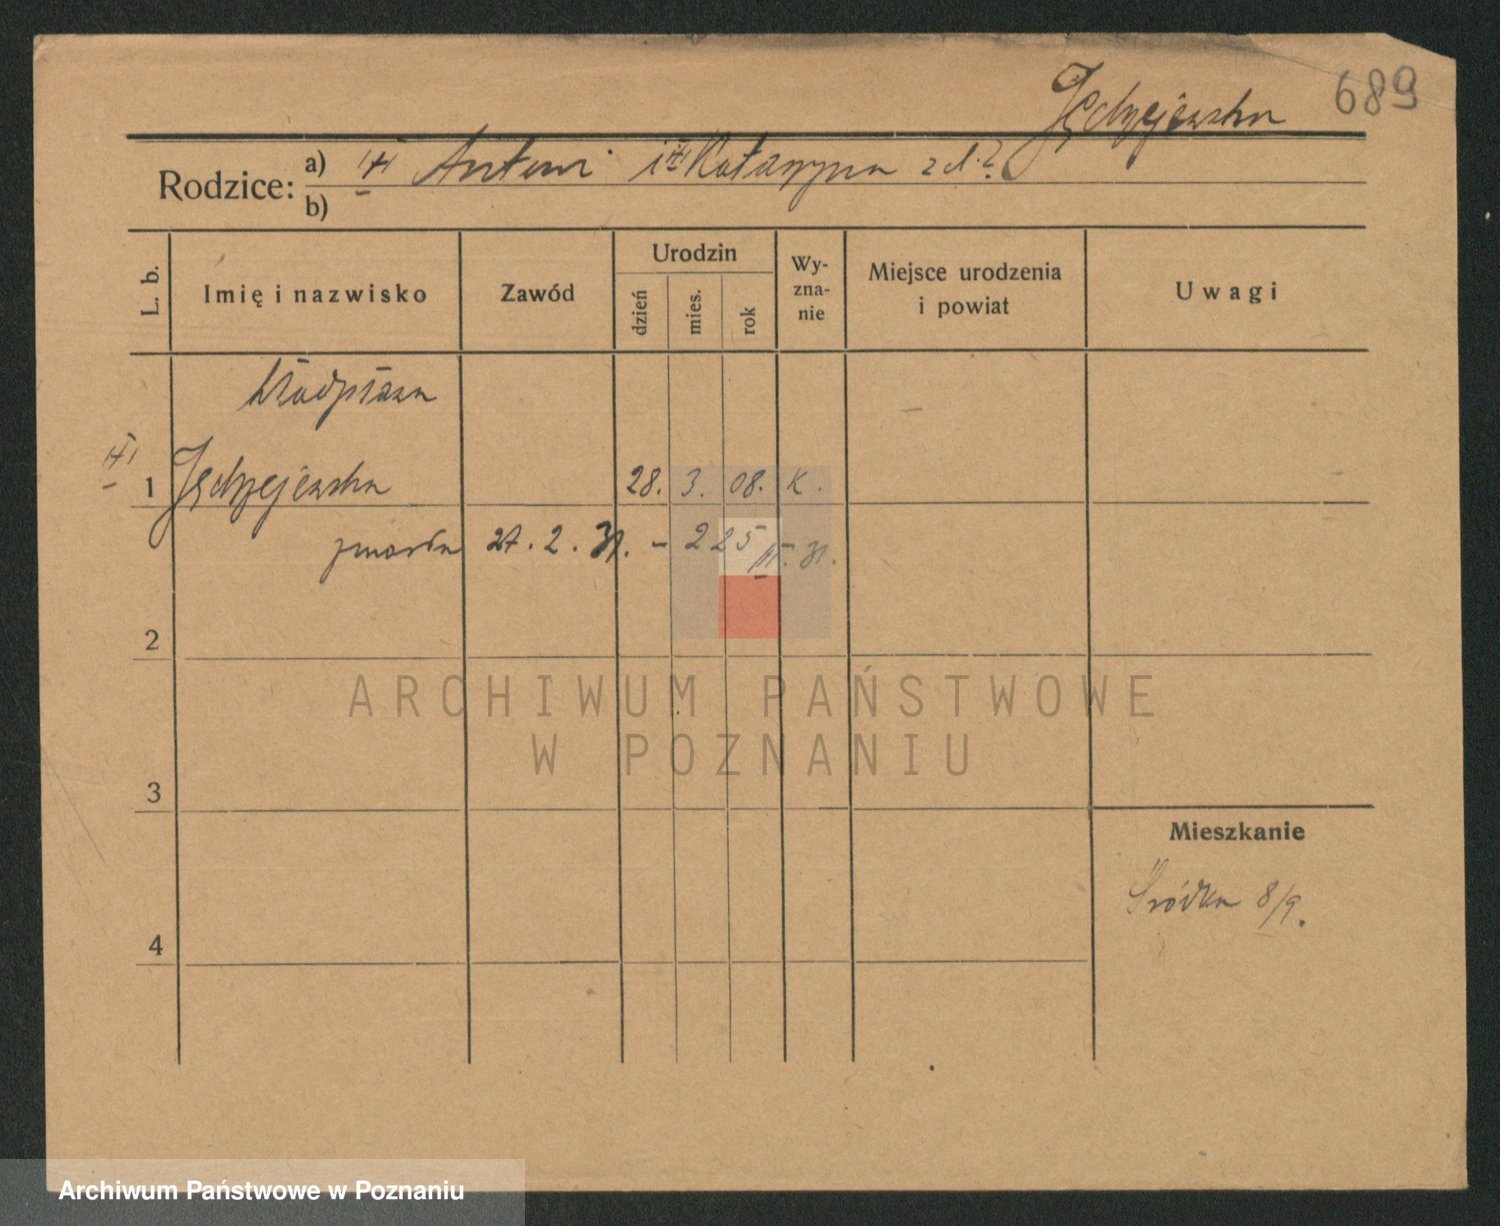 689
Jędrzejewska
Rodzice: a) Antoni i Katarzyna z d. ?
b)
L. b. Imię i nazwisko Zawód Urodzin dzień mies. rok Wy-zna-nie Miejsce urodzenia i powiat Uwagi
Władysława
1 Jędrzejewska 28. 3. 08. K.
zmarła 27. 2. 31. - 225/III. 31.
2
ARCHIWUM PAŃSTWOWE
W POZNANIU
3
Mieszkanie
Śródka 8/9.
4
Archiwum Państwowe w Poznaniu